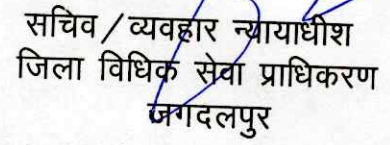 सचिव/व्यवहार न्यायाधीश
जिला विधिक सेवा प्राधिकरण
जगदलपुर